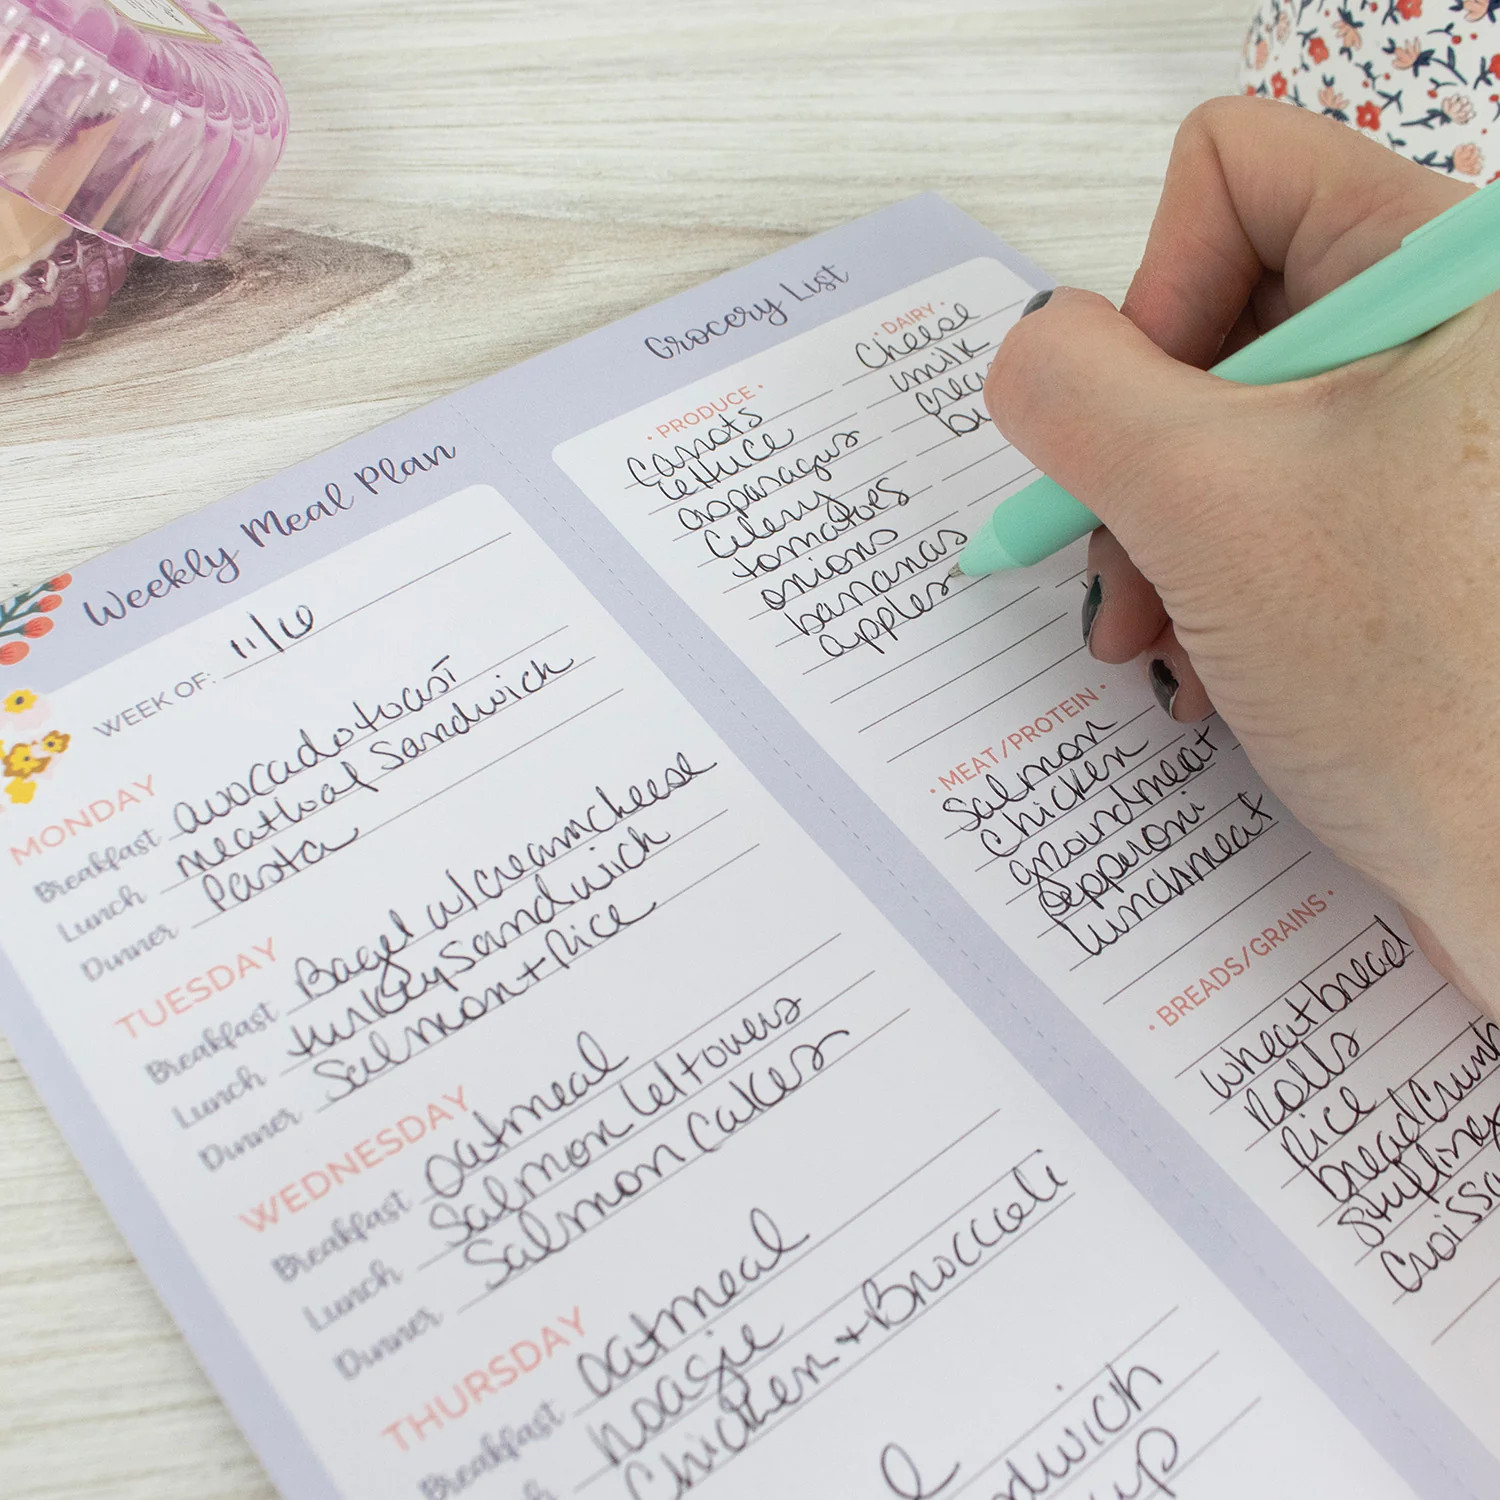 Weekly Meal Plan
WEEK OF: 11/10
MONDAY
Breakfast avocado toast
Lunch meatloaf sandwich
Dinner Pasta
TUESDAY
Breakfast Bagel w/creamcheese
Lunch turkey sandwich
Dinner Salmon + Rice
WEDNESDAY
Breakfast oatmeal
Lunch Salmon leftovers
Dinner Salmon Cakes
THURSDAY
Breakfast oatmeal
hoagie
Chicken + Broccoli
Grocery List
· PRODUCE ·
carrots
lettuce
asparagus
Celery
tomatoes
onions
bananas
apples
· DAIRY ·
Cheese
milk
· MEAT/PROTEIN ·
Salmon
Chicken
ground meat
Pepperoni
lunchmeat
· BREADS/GRAINS ·
wheat bread
Rolls
Rice